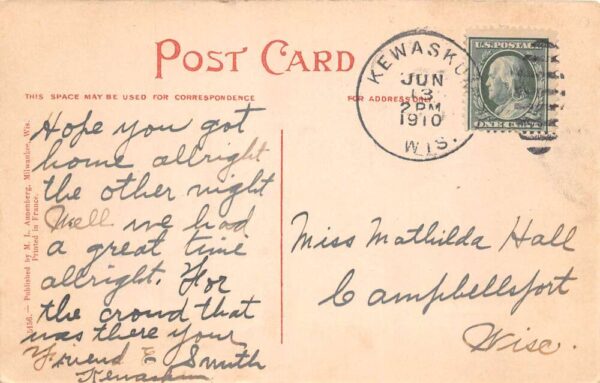 POST CARD
THIS SPACE MAY BE USED FOR CORRESPONDENCE
FOR ADDRESS ONLY
KEWASKUM
JUN
13
2 PM
1910
WIS.
U.S. POSTAGE
ONE CENT
Hope you got
home allright
the other night
Well we had
a great time
allright. For
the crowd that
was there your
Friend E Smith
Kewaskum
Miss Mathilda Hall
Campbellsport
Wisc.
Published by M. L. Annenberg, Milwaukee, Wis.
Printed in France.